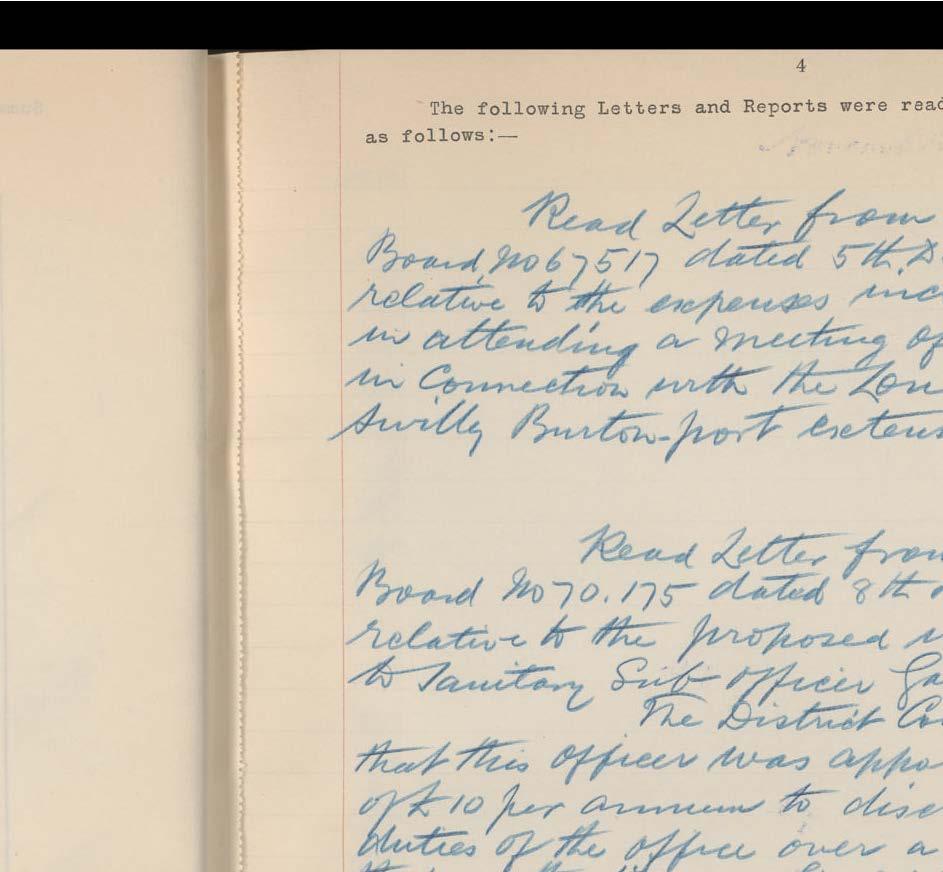 4
The following Letters and Reports were read
as follows:—
Read Letter from
Board, No 67517 dated 5th. D
relative to the expenses inc
in attending a meeting of
in Connection with the Lou
Swilly Burton-port extens
Read Letter from
Board No 70.175 dated 8th
relative to the proposed
to Sanitary Sub officer Ga
The District Co
that this officer was appo
of £10 per annum to disc
duties of the office over a